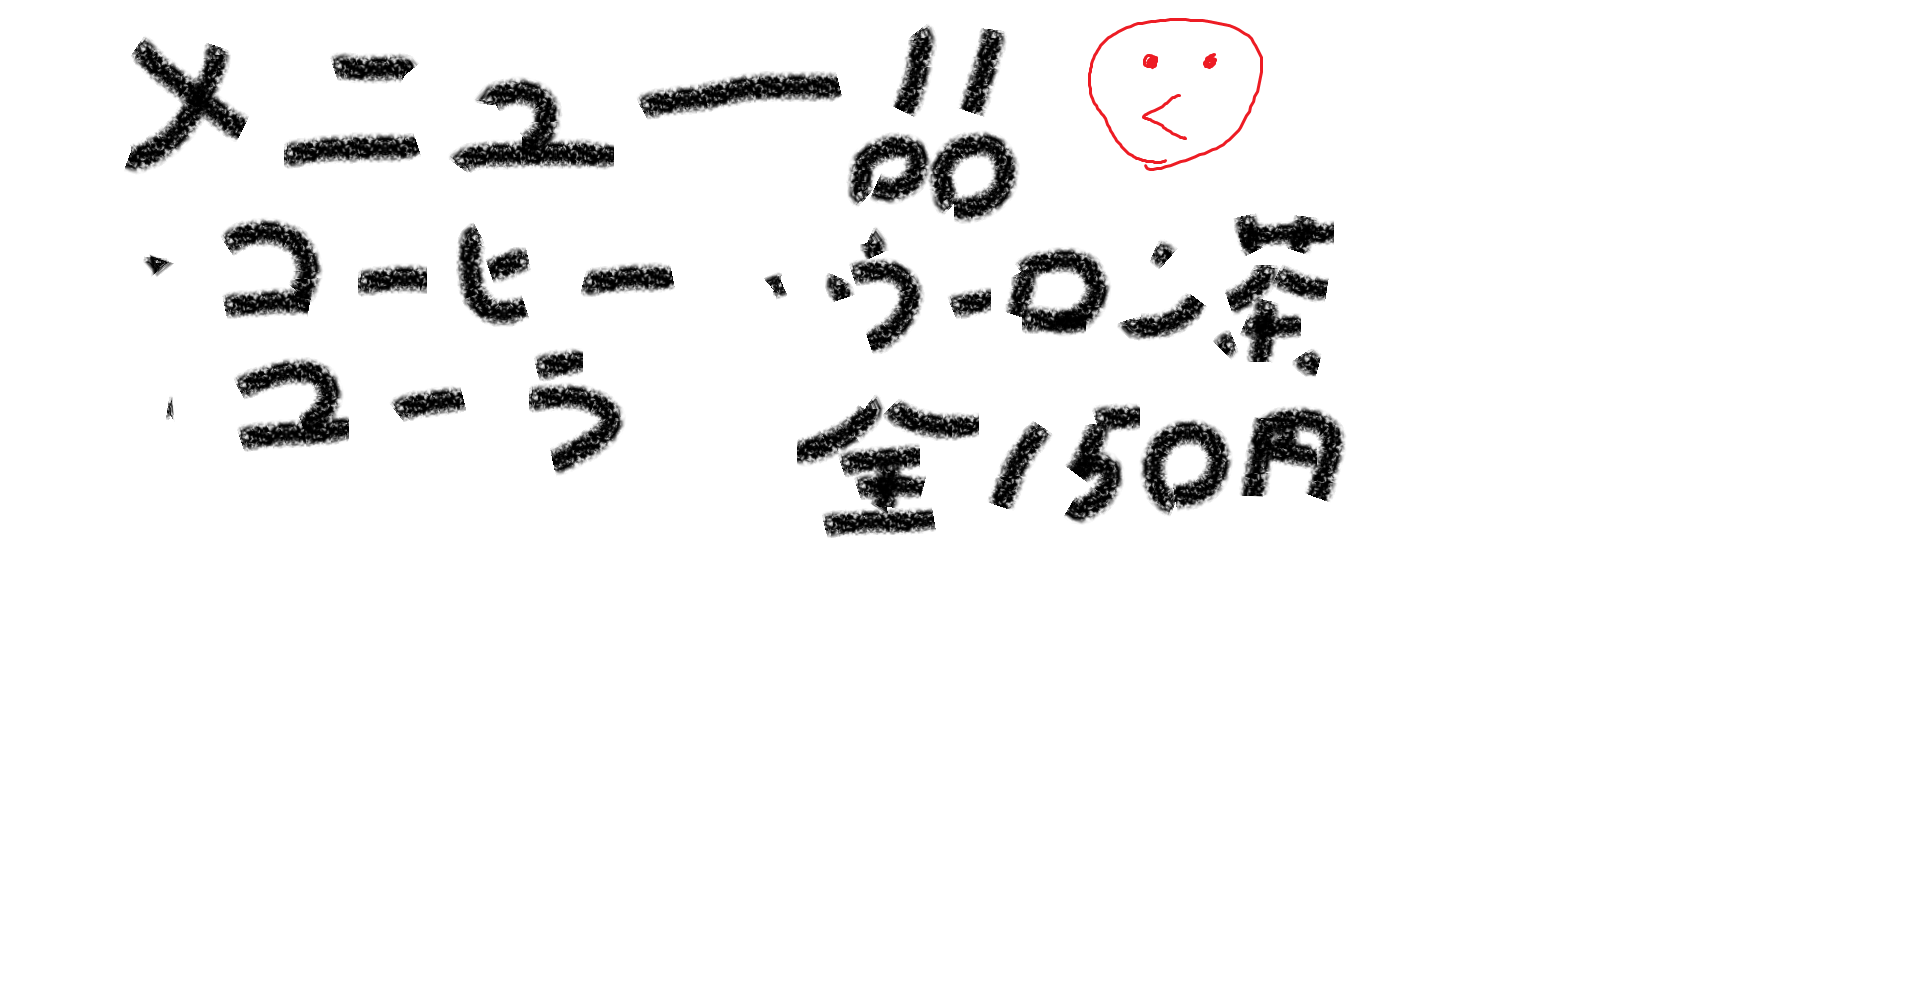 メニュー!!
・コーヒー ・ウーロン茶
・コーラ
全150円